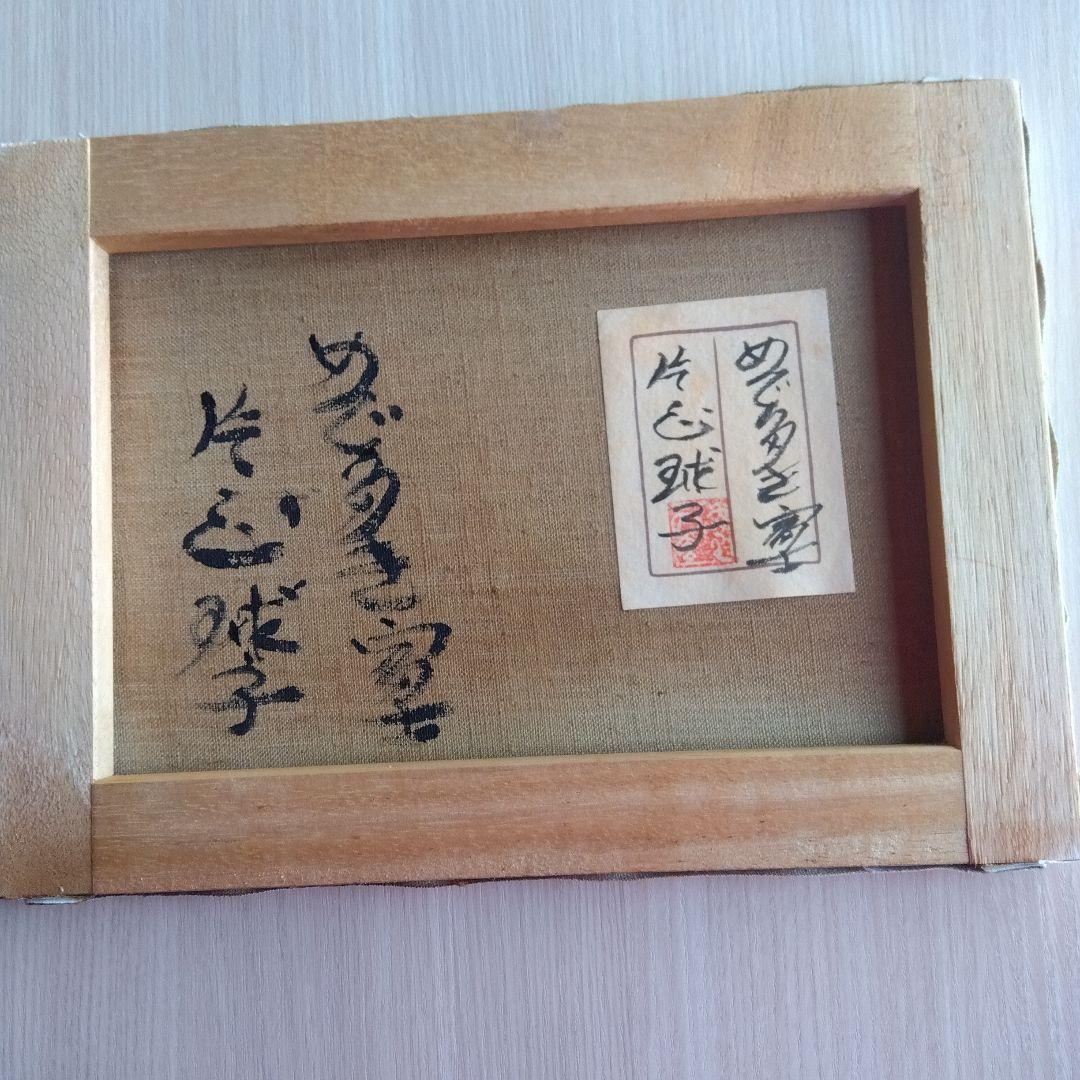 めでたき富士
片岡球子
めでたき富士
片岡球子